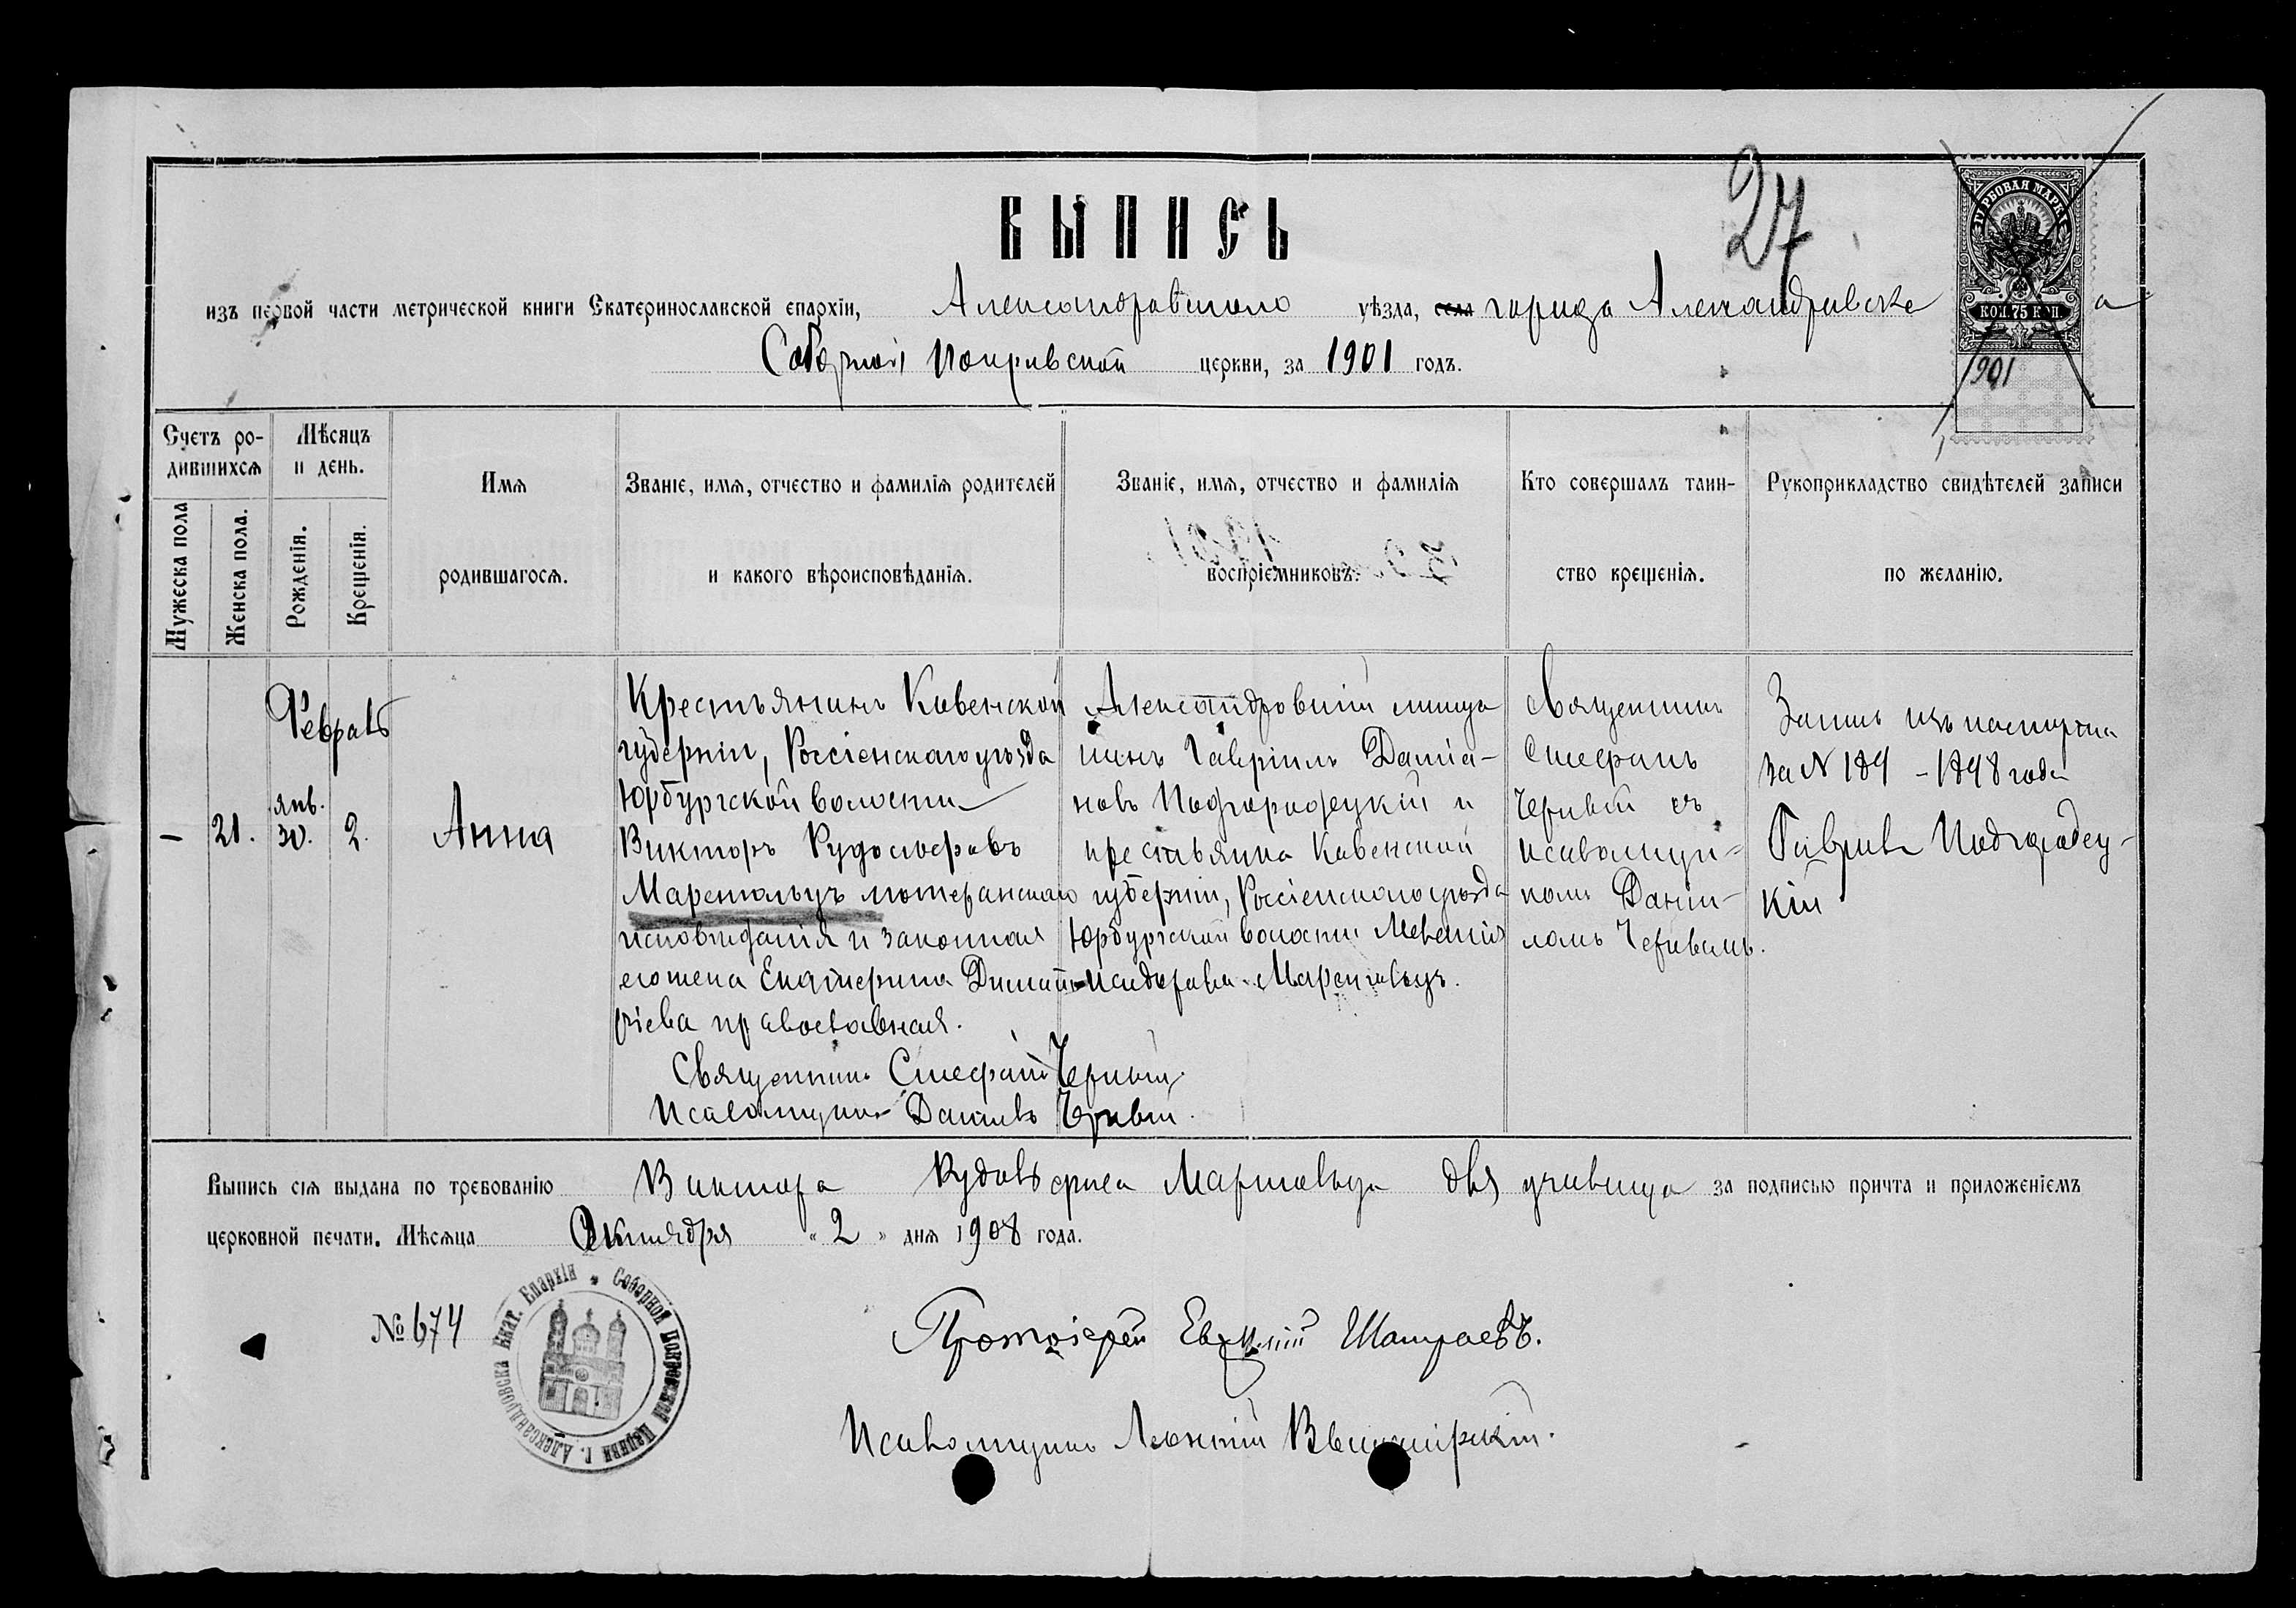 27
ВЫПИСЬ
изъ первой части метрической книги Екатеринославской епархіи, Александровскаго уѣзда, села города Александровска
Соборной Покровской церкви, за 1901 годъ.
ГЕРБОВАЯ МАРКА
КОП. 75 КОП.
1901
Счетъ ро-
дившихся
Мужеска пола
Женска пола.
Мѣсяцъ
и день.
Рожденія.
Крещенія.
Имя
родившагося.
Званіе, имя, отчество и фамилія родителей
и какого вѣроисповѣданія.
Званіе, имя, отчество и фамилія
воспріемниковъ.
Кто совершалъ таин-
ство крещенія.
Рукоприкладство свидѣтелей записи
по желанію.
–
21.
Февраль
янв.
30.
2.
Анна
Крестьянинъ Ковенской
губерніи, Россіенскаго уѣзда
Юрбургской волости
Викторъ Рудольфовъ
лютеранскаго
исповѣданія и законная
его жена Екатерина Димит-
ріева православная.
Священникъ Стефанъ Черный.
Псаломщикъ Даніилъ
Александровскій мѣща
нинъ Гавріилъ Даміа-
новъ Подгородецкій и
крестьянка Ковенской
губерніи, Россіенскаго уѣзда
Юрбургской волости
Священникъ
Стефанъ
съ
псаломщи-
комъ Даніи-
ломъ
Запись изъ паспорта
за N 184 –
Гавріилъ Подгородец-
кій
Выпись сія выдана по требованію Виктора Рудольфова для училища за подписью причта и приложеніемъ
церковной печати. Мѣсяца Октября „2„ дня 1908 года.
№ 674
Екат. Епархіи * Соборной Покровской Церкви г. Александровска
Протоіерей
Псаломщикъ Леонтій